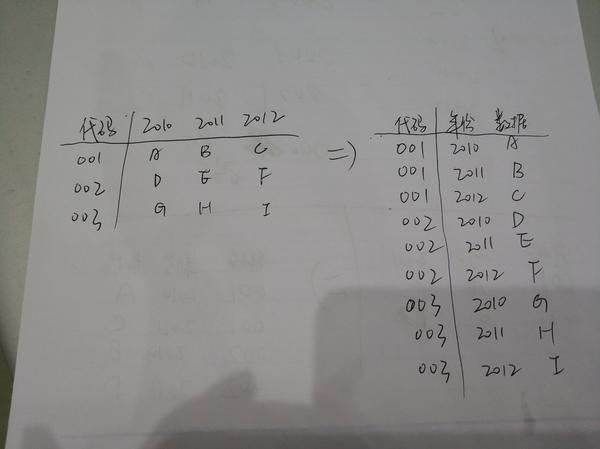 代码 2010 2011 2012
001 A B C
002 D E F
003 G H I
=)
代码 年份 数据
001 2010 A
001 2011 B
001 2012 C
002 2010 D
002 2011 E
002 2012 F
003 2010 G
003 2011 H
003 2012 I